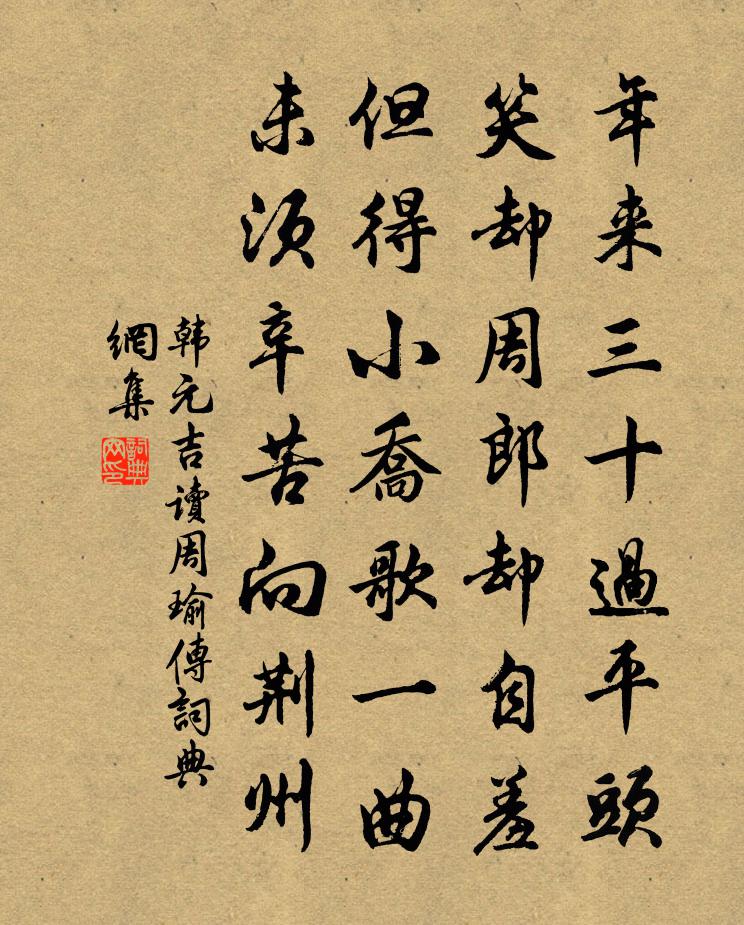 年来三十過平頭
笑却周郎却自羞
但得小喬歌一曲
未須辛苦向荆州
韩元吉讀周瑜傳詞典
網集
詞典
网印